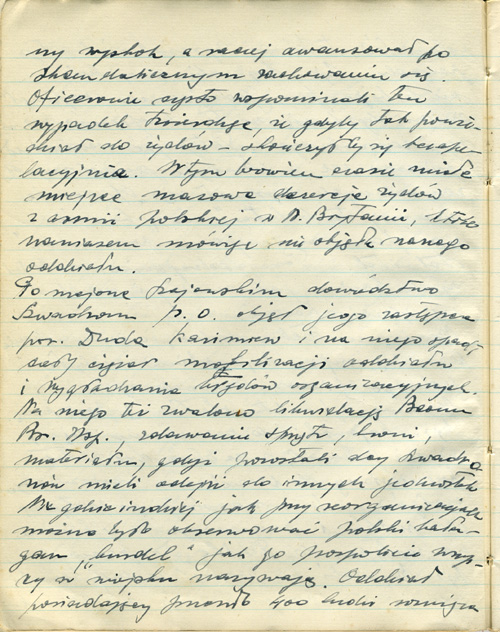 ny wyskok, a raczej awansował po
skandalicznym zachowaniu się.
Oficerowie często wspominali ten
wypadek twierdząc, że gdyby tak powie-
dział do żydów – skończyłby się
lacyjnie. W tym bowiem czasie miała
miejsce masowa dezercja żydów
z armii polskiej w W. Brytanii, która
nawiasem mówiąc nie objęła naszego
oddziału.
Po majorze Szajewskim dowództwo
Szwadronu p. o. objął jego zastępca
por. Duda Kazimierz i na niego spadł
cały ciężar mobilizacji oddziału
i wygładzania błędów organizacyjnych.
Na niego też zwalono likwidację
Br. Wsp., zdawanie sprzętu, broni,
materiału, gdyż pozostali dcy Szwadro
nów mieli odejść do innych jednostek
Nie gdzie indziej jak przy reorganizacjach
można było obserwować polski bała-
gan, "burdel" jak go pospolicie wszy-
scy w wojsku nazywają. Oddział
posiadający prawie 400 ludzi